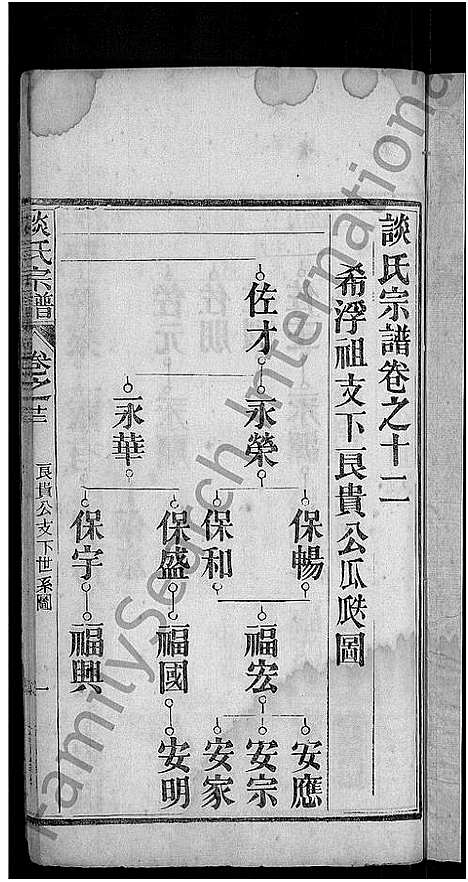 談氏宗譜卷之十二
希浮祖支下良貴公瓜瓞圖
佐才
永榮
永華
保暢
保和
保盛
保宇
福宏
福國
福興
安應
安宗
安家
安明
談氏宗譜
卷之十二
良貴公支下世系圖
一
FamilySearch International